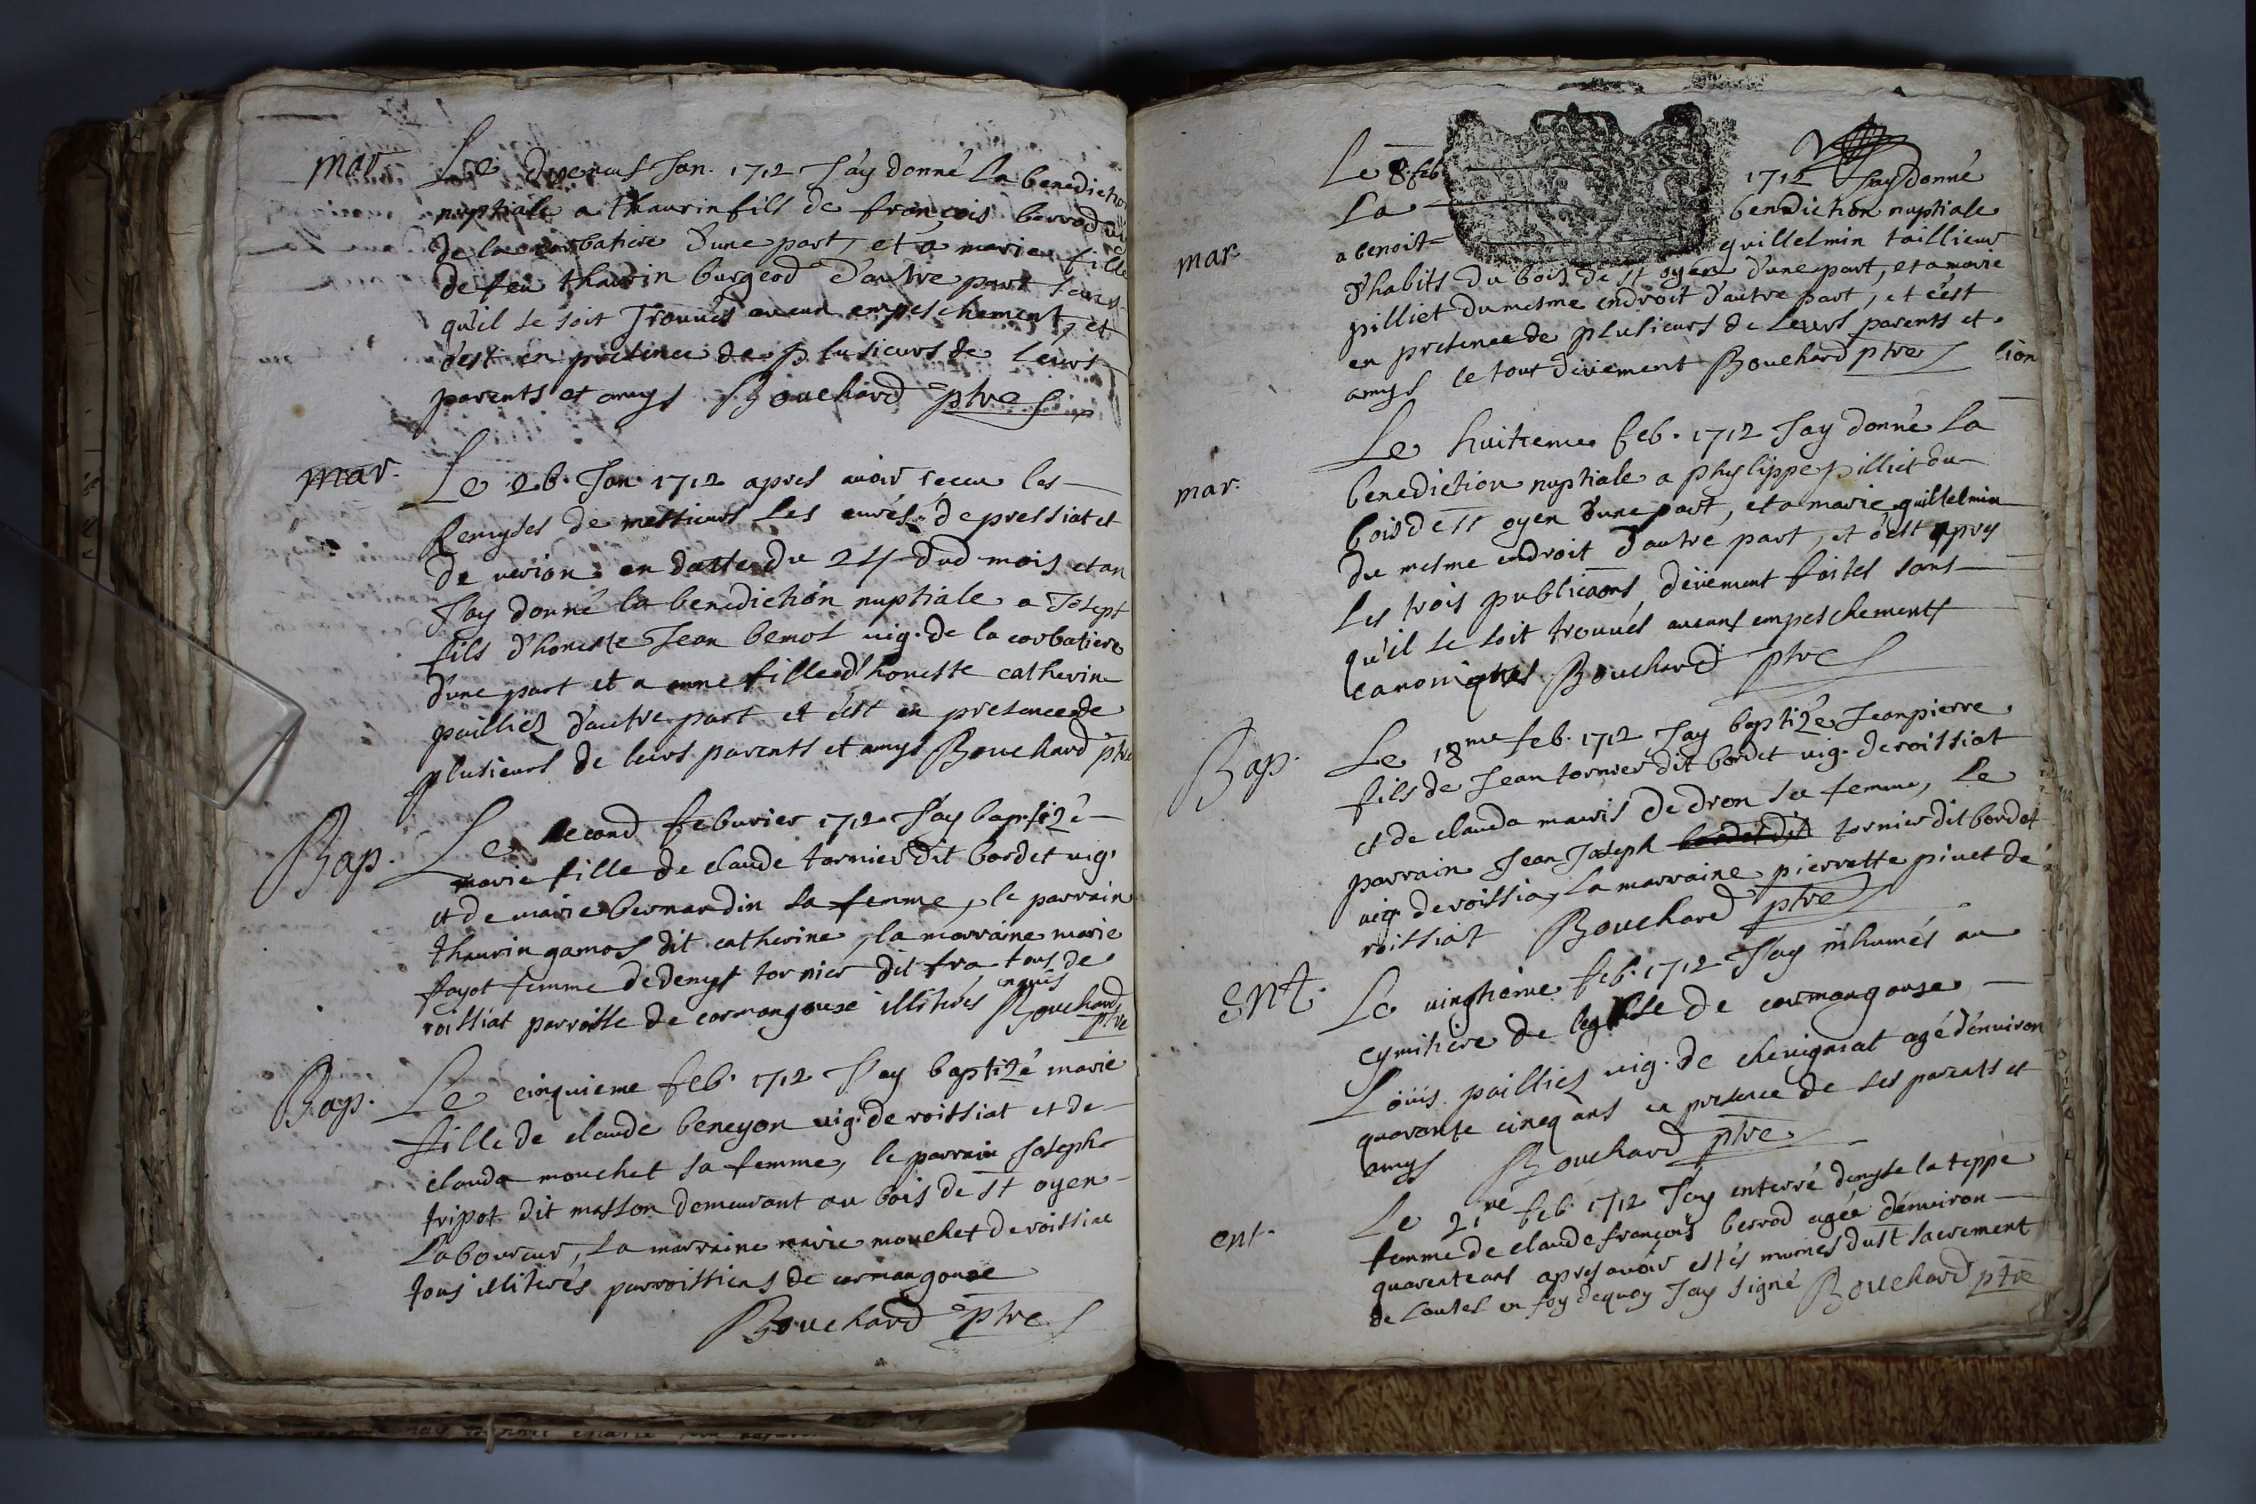 mar Le dixneuf Jan. 1712 J'ay donné La benediction
nuptiale a thaurin fils de françois berrod
de la corbatiere d'une part, et a marie fille
de feu thaurin burgeod d'autre part sans
qu'il se soit trouvés aucun empeschement, et
c'est en presence de plusieurs de leurs
parents et amys Bouchard ptre
mar. Le 26. Jan. 1712 apres avoir receu les
Remyses de messieurs les curés de pressiat et
de verjon en datte du 24 dud mois et an
J'ay donné la benediction nuptiale a Joseph
fils d'honeste Jean bemol vig. de la corbatiere
d'une part et a anne fille d'honeste catherin
pailliez d'autre part et c'est en presence de
plusieurs de leurs parents et amys Bouchard ptre
Bap. Le second feburier 1712 J'ay baptizé
marie fille de claude tornier dit bordet vig.
et de marie bernardin sa femme, le parrain
thaurin gamos dit catherine, la marraine marie
fayot femme de denys tornier dit fra tous de
roissiat parroisse de cormangouse illiterés enquis Bouchard
ptre
Bap. Le cinquieme feb. 1712 J'ay baptizé marie
fille de claude beneyon vig. de roissiat et de
clauda mouchet sa femme, le parrain Joseph
tripot dit masson demeurant au bois de st oyen
Laboureur, la marraine marie mouchet de roissiat
tous illiterés parroissiens de cormangouse
Bouchard ptre
Le 8. feb 1712 J'ay donné
La benediction nuptiale
mar. a benoit guillelmin taillieur
d'habits du bois de st oyen d'une part, et a marie
pilliet du mesme endroit d'autre part, et c'est
en presence de plusieurs de leurs parents et
amys le tout düement Bouchard ptre
Le huitieme feb. 1712 J'ay donné la
mar. benediction nuptiale a phylippe pilliet du
bois de st oyen d'une part, et a marie guillelmin
du mesme endroit d'autre part, et c'est apres
les trois publicaons düement faites sans
qu'il se soit trouvés aucuns empeschements
canoniques Bouchard ptre
Bap. Le 18me feb. 1712 J'ay baptizé Jeanpierre
fils de Jean tornier dit bordet vig. de roissiat
et de clauda mauris de dron sa femme, le
parrain Jean Joseph bordet dit tornier dit bordet
vig. de roissia, la marraine pierrette pivet de
roissiat Bouchard ptre
Ent. Le vingtieme feb. 1712 J'ay inhumés au
cymitiere de leglise de cormangouse
Loüis pailliez vig. de chevignat agé d'environ
quarante cincq ans en presence de ses parents et
amys Bouchard ptre
ent. Le 21me feb. 1712 J'ay enterré denyse la teppe
femme de claude françois berrod agée d'environ
quarente ans apres avoir estés munies du st sacrement
de l'autel en foy dequoy J'ay signé Bouchard ptre